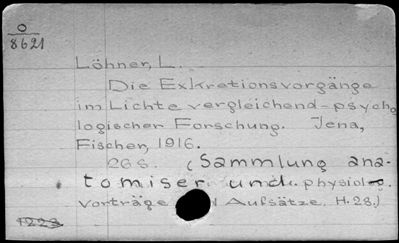 O
8621
Löhner, L.
Die Exkretionsvorgänge
im Lichte vergleichend-psycho
logischer Forschung. Jena,
Fischer, 1916.
26 S. (Sammlung ana-
tomiser und physiol.
Vorträge Aufsätze. H. 28.)